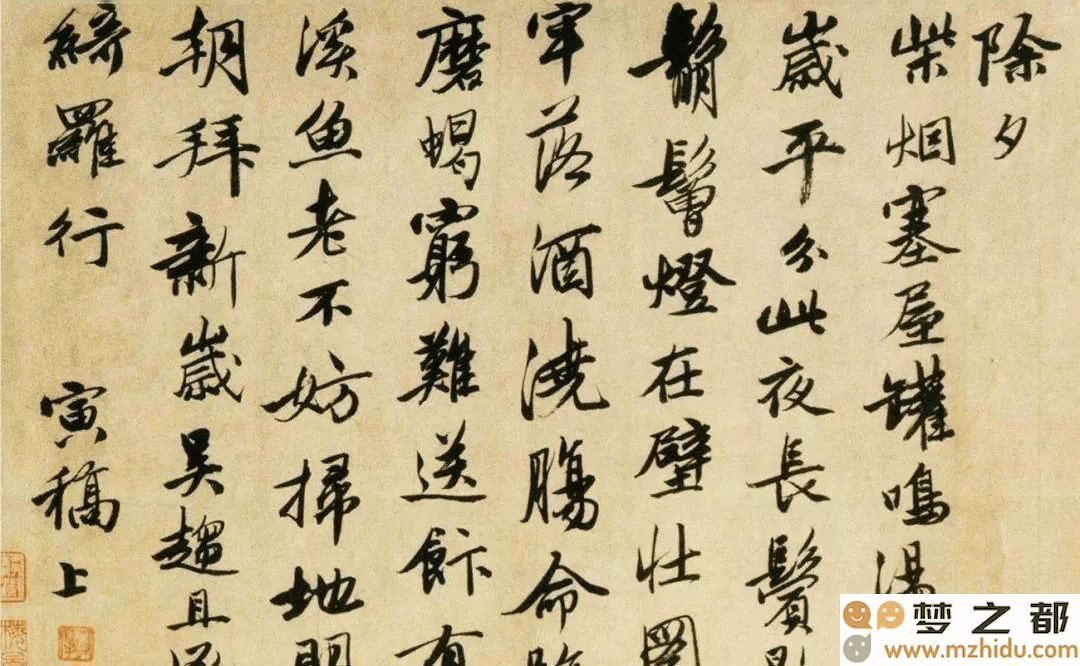 除夕
柴烟塞屋罐鳴湯
歲平分此夜長鬢影
鬅鬙燈在壁壯圖
牢落酒澆腸命臨
磨蝎窮難送餅有
溪魚老不妨掃地明
朝拜新歲吳趨且逐
綺羅行 寅稿上
梦之都
www.mzhidu.com